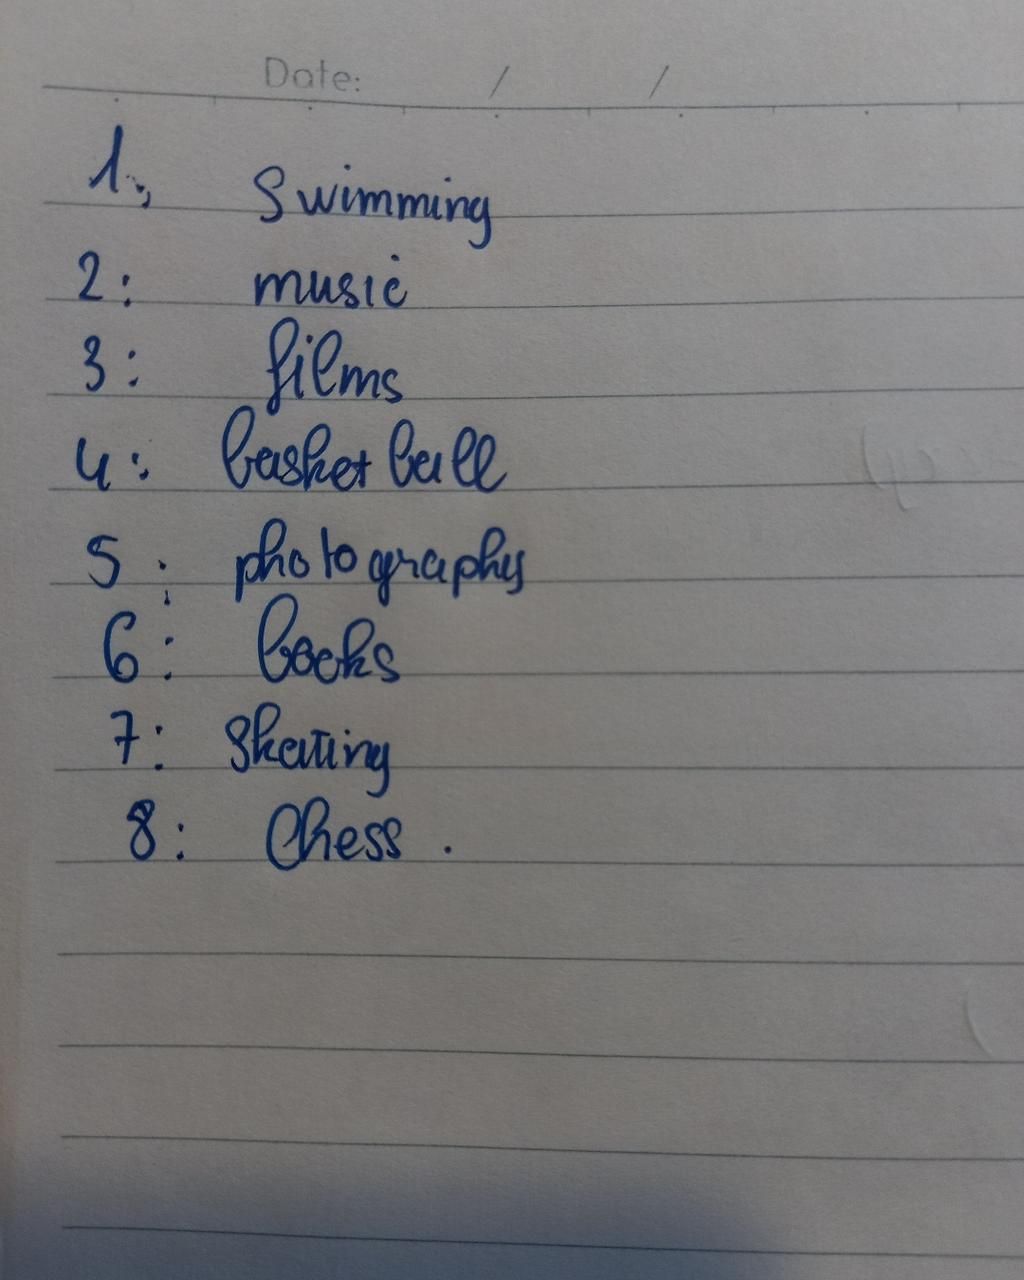 Date: / /
1., Swimming
2: music
3: films
4: basket ball
5: photography
6: books
7: Skating
8: Chess .